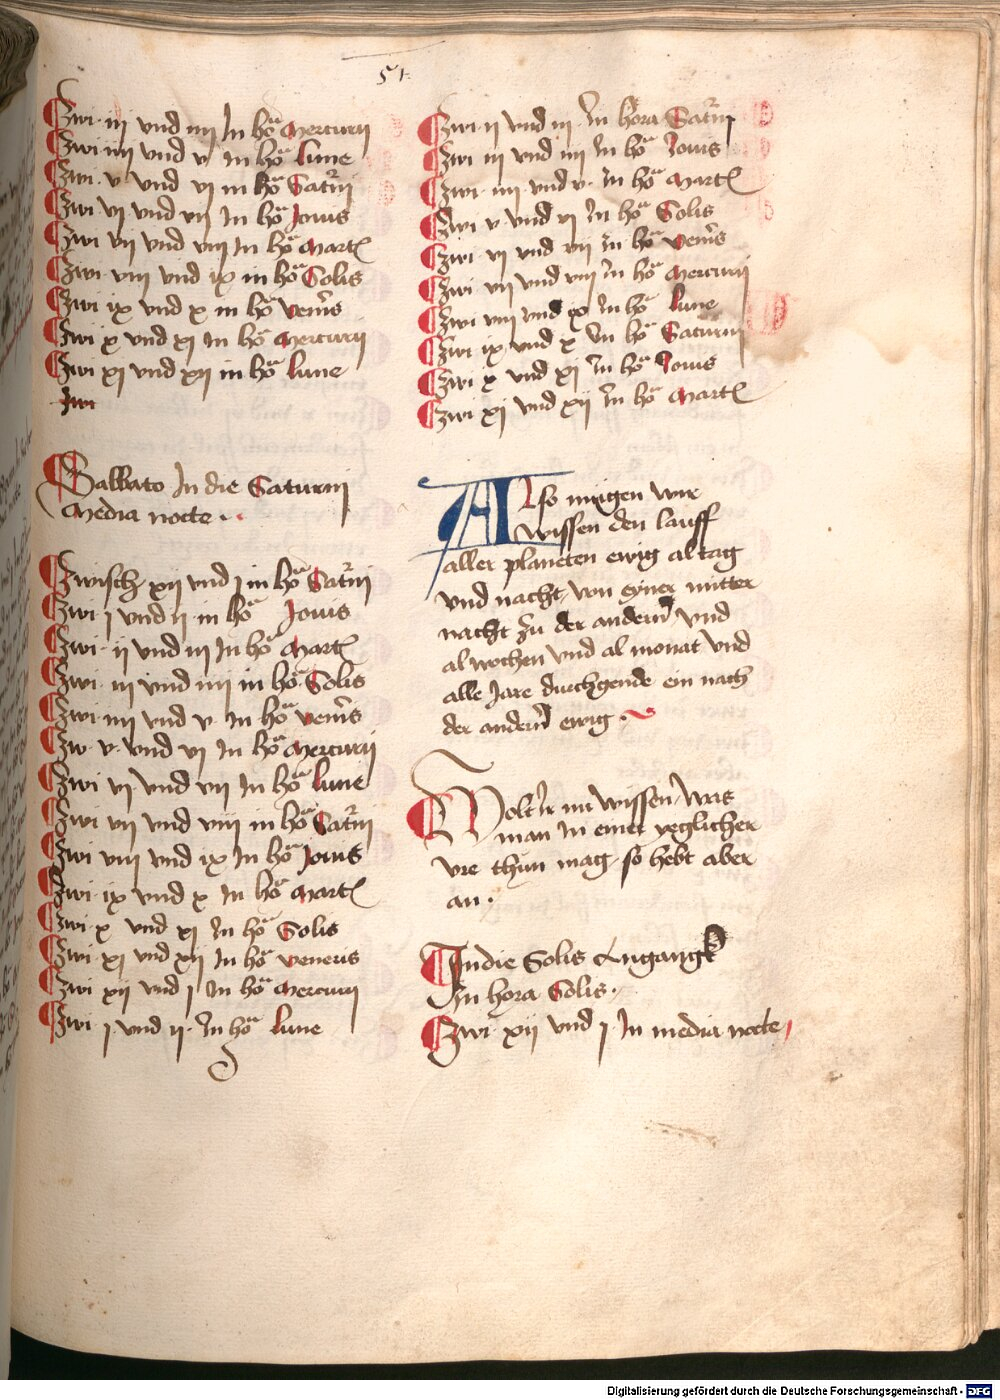 51
Zwi · iij vnd iiij In hoͣ Mercurij
Zwi · iiij vnd v · In hoͣ lune
Zwi · v · vnd vj in hoͣ Sat'nj
Zwi vj vnd vij In hoͣ Jouis
Zwi vij vnd viij In hoͣ Martꝭ
Zwi · viij vnd ix in hoͣ Solis
Zwi ix vnd x in hoͣ ven̄is
Zwi x vnd xj In hoͣ Mercurij
Zwi xj vnd xij in hoͣ lune
Zwi
Sabbato In die Saturnj
Media nocte ·
Zwisch xij vnd j in hoͣ Sat'nj
Zwi j vnd ij in hoͣ Jouis
Zwi · ij vnd iij In hoͣ Martꝭ
Zwi · iij vnd iiij in hoͣ Solis
Zwi · iiij vnd v · In hoͣ ven̄is
Zw · v · vnd vj In hoͣ Mercurij
Zwi vj · vnd vij In hoͣ lune
Zwi vij vnd viij in hoͣ Sat'nj
Zwi viij vnd ix In hoͣ Jouis
Zwi · ix vnd x In hoͣ Martꝭ
Zwi · x vnd xj In hoͣ Solis
Zwi · xj vnd xij In hoͣ veneris
Zwi xij vnd j In hoͣ Mercurij
Zwi j · vnd ij · In hoͣ lune
Zwi · ij vnd iij · In hora Sat'nj
Zwi iij vnd iiij In hoͣ Jouis
Zwi · iiij vnd v · In hoͣ Martꝭ
Zwi v · vnd vj In hoͣ Solis
Zwi vj vnd vij In hoͣ ven̄is
Zwi vij vnd viij In hoͣ Mercurij
Zwi viij vnd ix In hoͣ lune
Zwi ix vnd x In hoͣ Saturnj
Zwi x vnd xj In hoͣ Jouis
Zwi xj vnd xij In hoͣ Martꝭ
Also mŭgen wir
wissen den lauff
aller planeten ewig al tag
vnd nacht, von eyner mitter
nacht zu der andern̄ vnd
al wochen vnd al monat vnd
alle Jare durchgende ein nach
der andern̄ ewig ·
Wolt Ir nu wissen, was
man In einer yeglicher
vre thun mag, so hebt aber
an ·
In die Solis Angangk
In hora Solis ·
Zwi · xij vnd j In media nocte
Digitalisierung gefördert durch die Deutsche Forschungsgemeinschaft - DFG